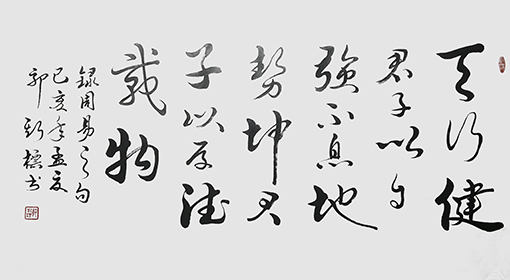 天行健
君子以自
強不息地
勢坤君
子以厚德
載物
録周易之句
己亥年孟夏
郭 书